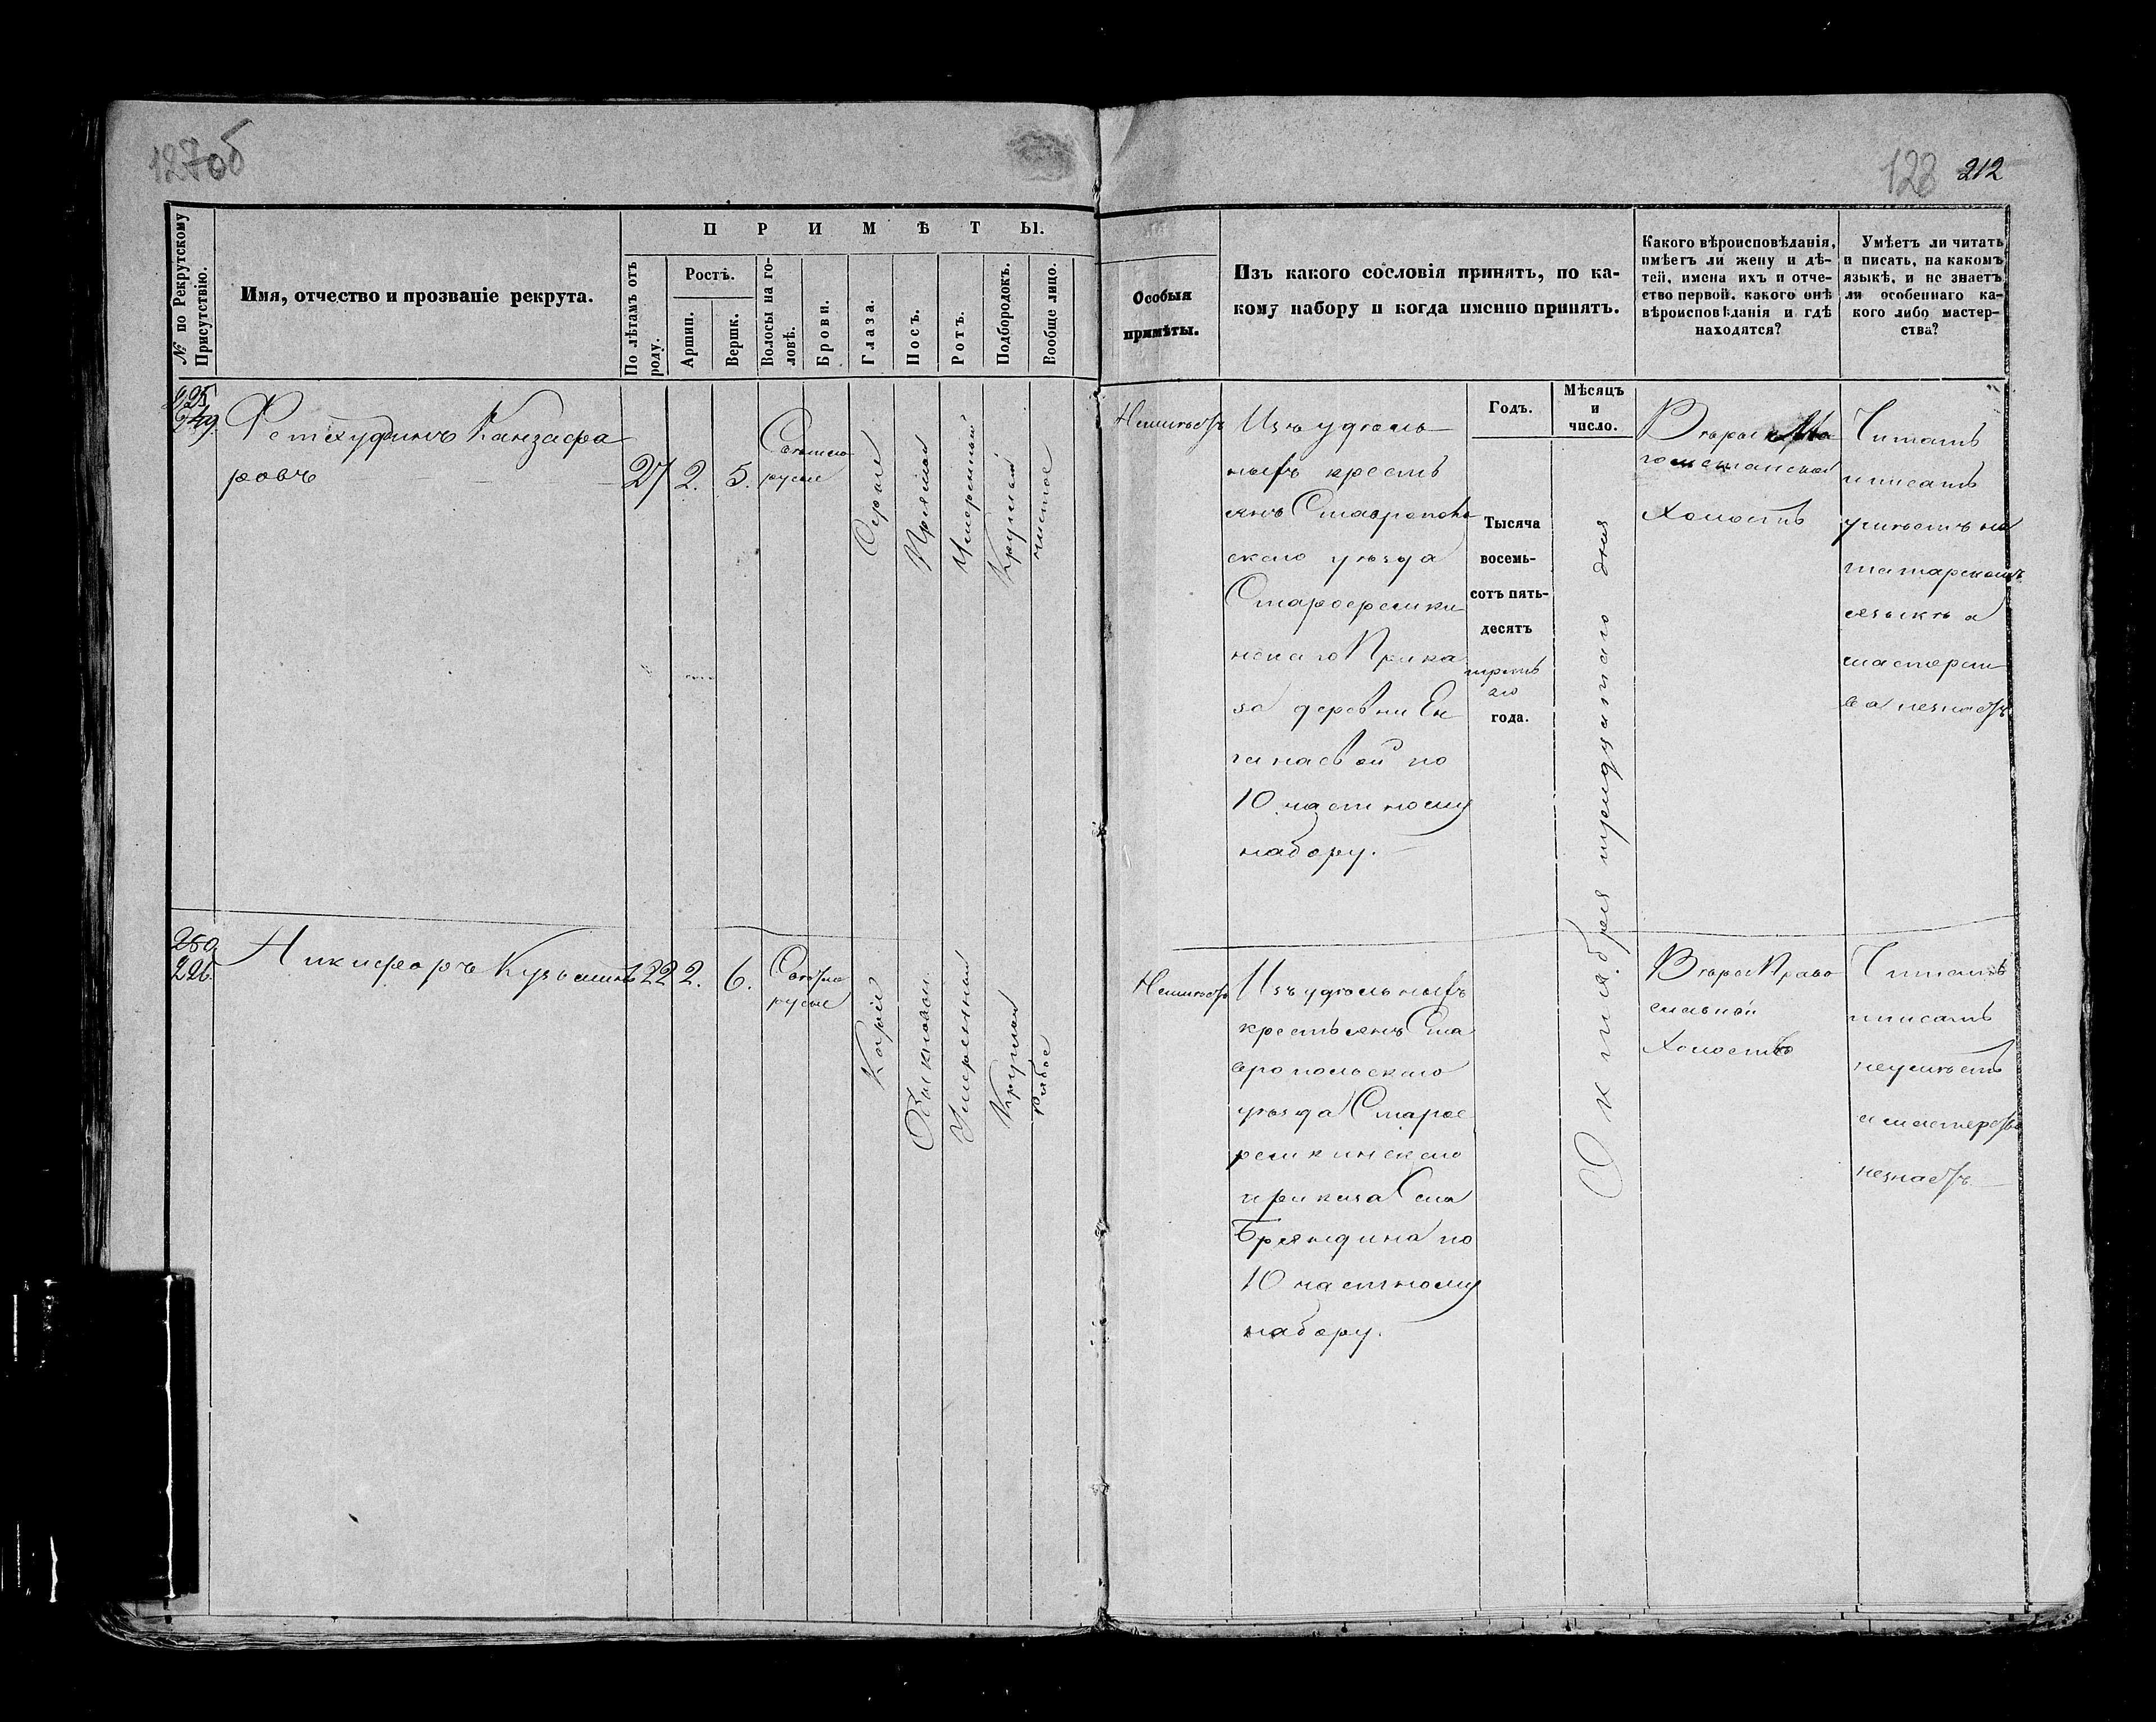 127об
128 212
№ по Рекрутскому Присутствію.
Имя, отчество и прозваніе рекрута.
ПРИМѢТЫ.
По лѣтамъ отъ роду.
Ростъ.
Аршин.
Вершк.
Волосы на головѣ.
Брови.
Глаза.
Носъ.
Ротъ.
Подбородокъ.
Вообще лицо.
Особыя
примѣты.
Изъ какого сословія принятъ, по ка-
кому набору и когда именно принятъ.
Какого вѣроисповѣданія,
имѣетъ ли жену и дѣ-
тей, имена ихъ и отче-
ство первой, какого онѣ
вѣроисповѣданія и гдѣ
находятся?
Умѣетъ ли читать
и писать, на какомъ
языкѣ, и не знаетъ
ли особеннаго ка-
кого либо мастер-
ства?
Годъ.
Мѣсяцъ
и
число.
225
249
Фетхудинъ Канзафа
ровъ
27
2.
5.
Светло
русые
Серые
Прямой
Умеренный
Круглый
чистое
Неимѣетъ
Изъ удѣль
ныхъ кресть
янъ Ставрополь
скаго уѣзда
Староереклин
нскаго Прика
за деревни Ен
ганаевой по
10 частному
набору.
Тысяча
восемь-
сотъ пять-
десятъ
треть
яго
года.
Октября тридцатаго дня
Веры Ма
гометанской
Холостъ
Читать
и писать
умѣетъ на
татарскомъ
языкѣ а
мастерст
ва незнаетъ
250
226.
Никифоръ Кузьминъ
22
2.
6.
Светло
русые
Каріе
Обыкновен.
Умеренный
Круглый
Рябое
Неимѣетъ
Изъ удѣльныхъ
крестьянъ Ста
вропольскаго
уѣзда Старое
реклинскаго
приказа Села
Бряндина по
10 частному
набору.
Веры Право
славной
Холостъ
Читать
и писать
неумѣетъ
и мастерства
незнаетъ